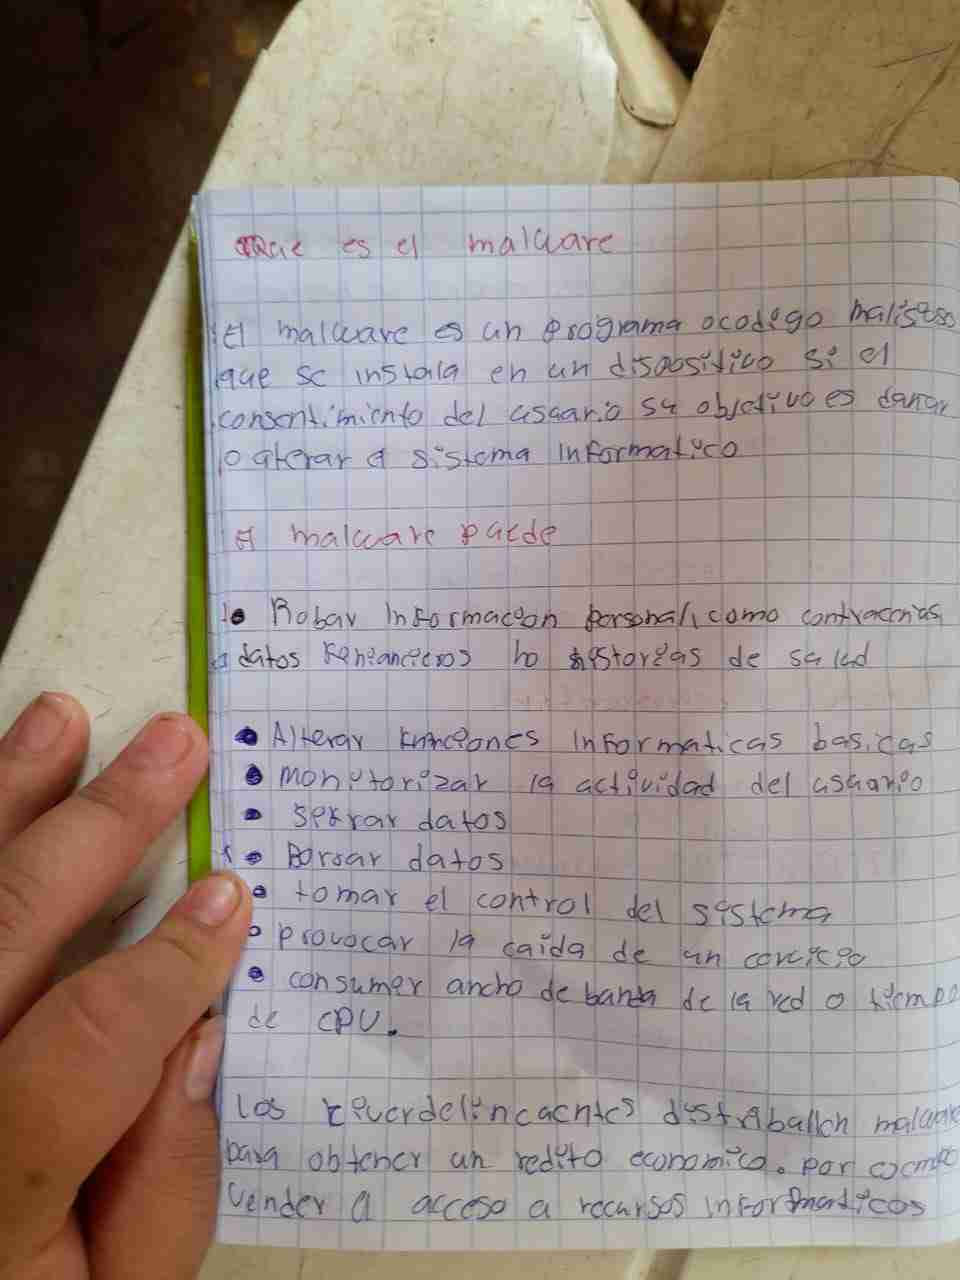 Que es el malware
El malware es un programa o codigo malisioso
que se instala en un dispositivo si el
consentimiento del usuario su objetivo es danar
o alterar el sistema informatico
El malware puede
Robar informacion personal, como contracenas,
datos financieros ho historias de salud
Alterar funciones informaticas basicas
monitorizar la actividad del usuario
sifrar datos
Borrar datos
tomar el control del sistema
provocar la caida de un cervicio
consumer ancho de banda de la red o tiempo
de CPU.
los civerdelincuentes distriballen malware
para obtener un redito economico. por ejemplo
vender el acceso a recursos informaticos